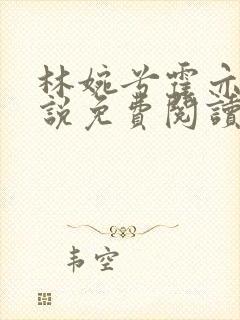 林婉兮霍亦
說免費閱讀
韦空